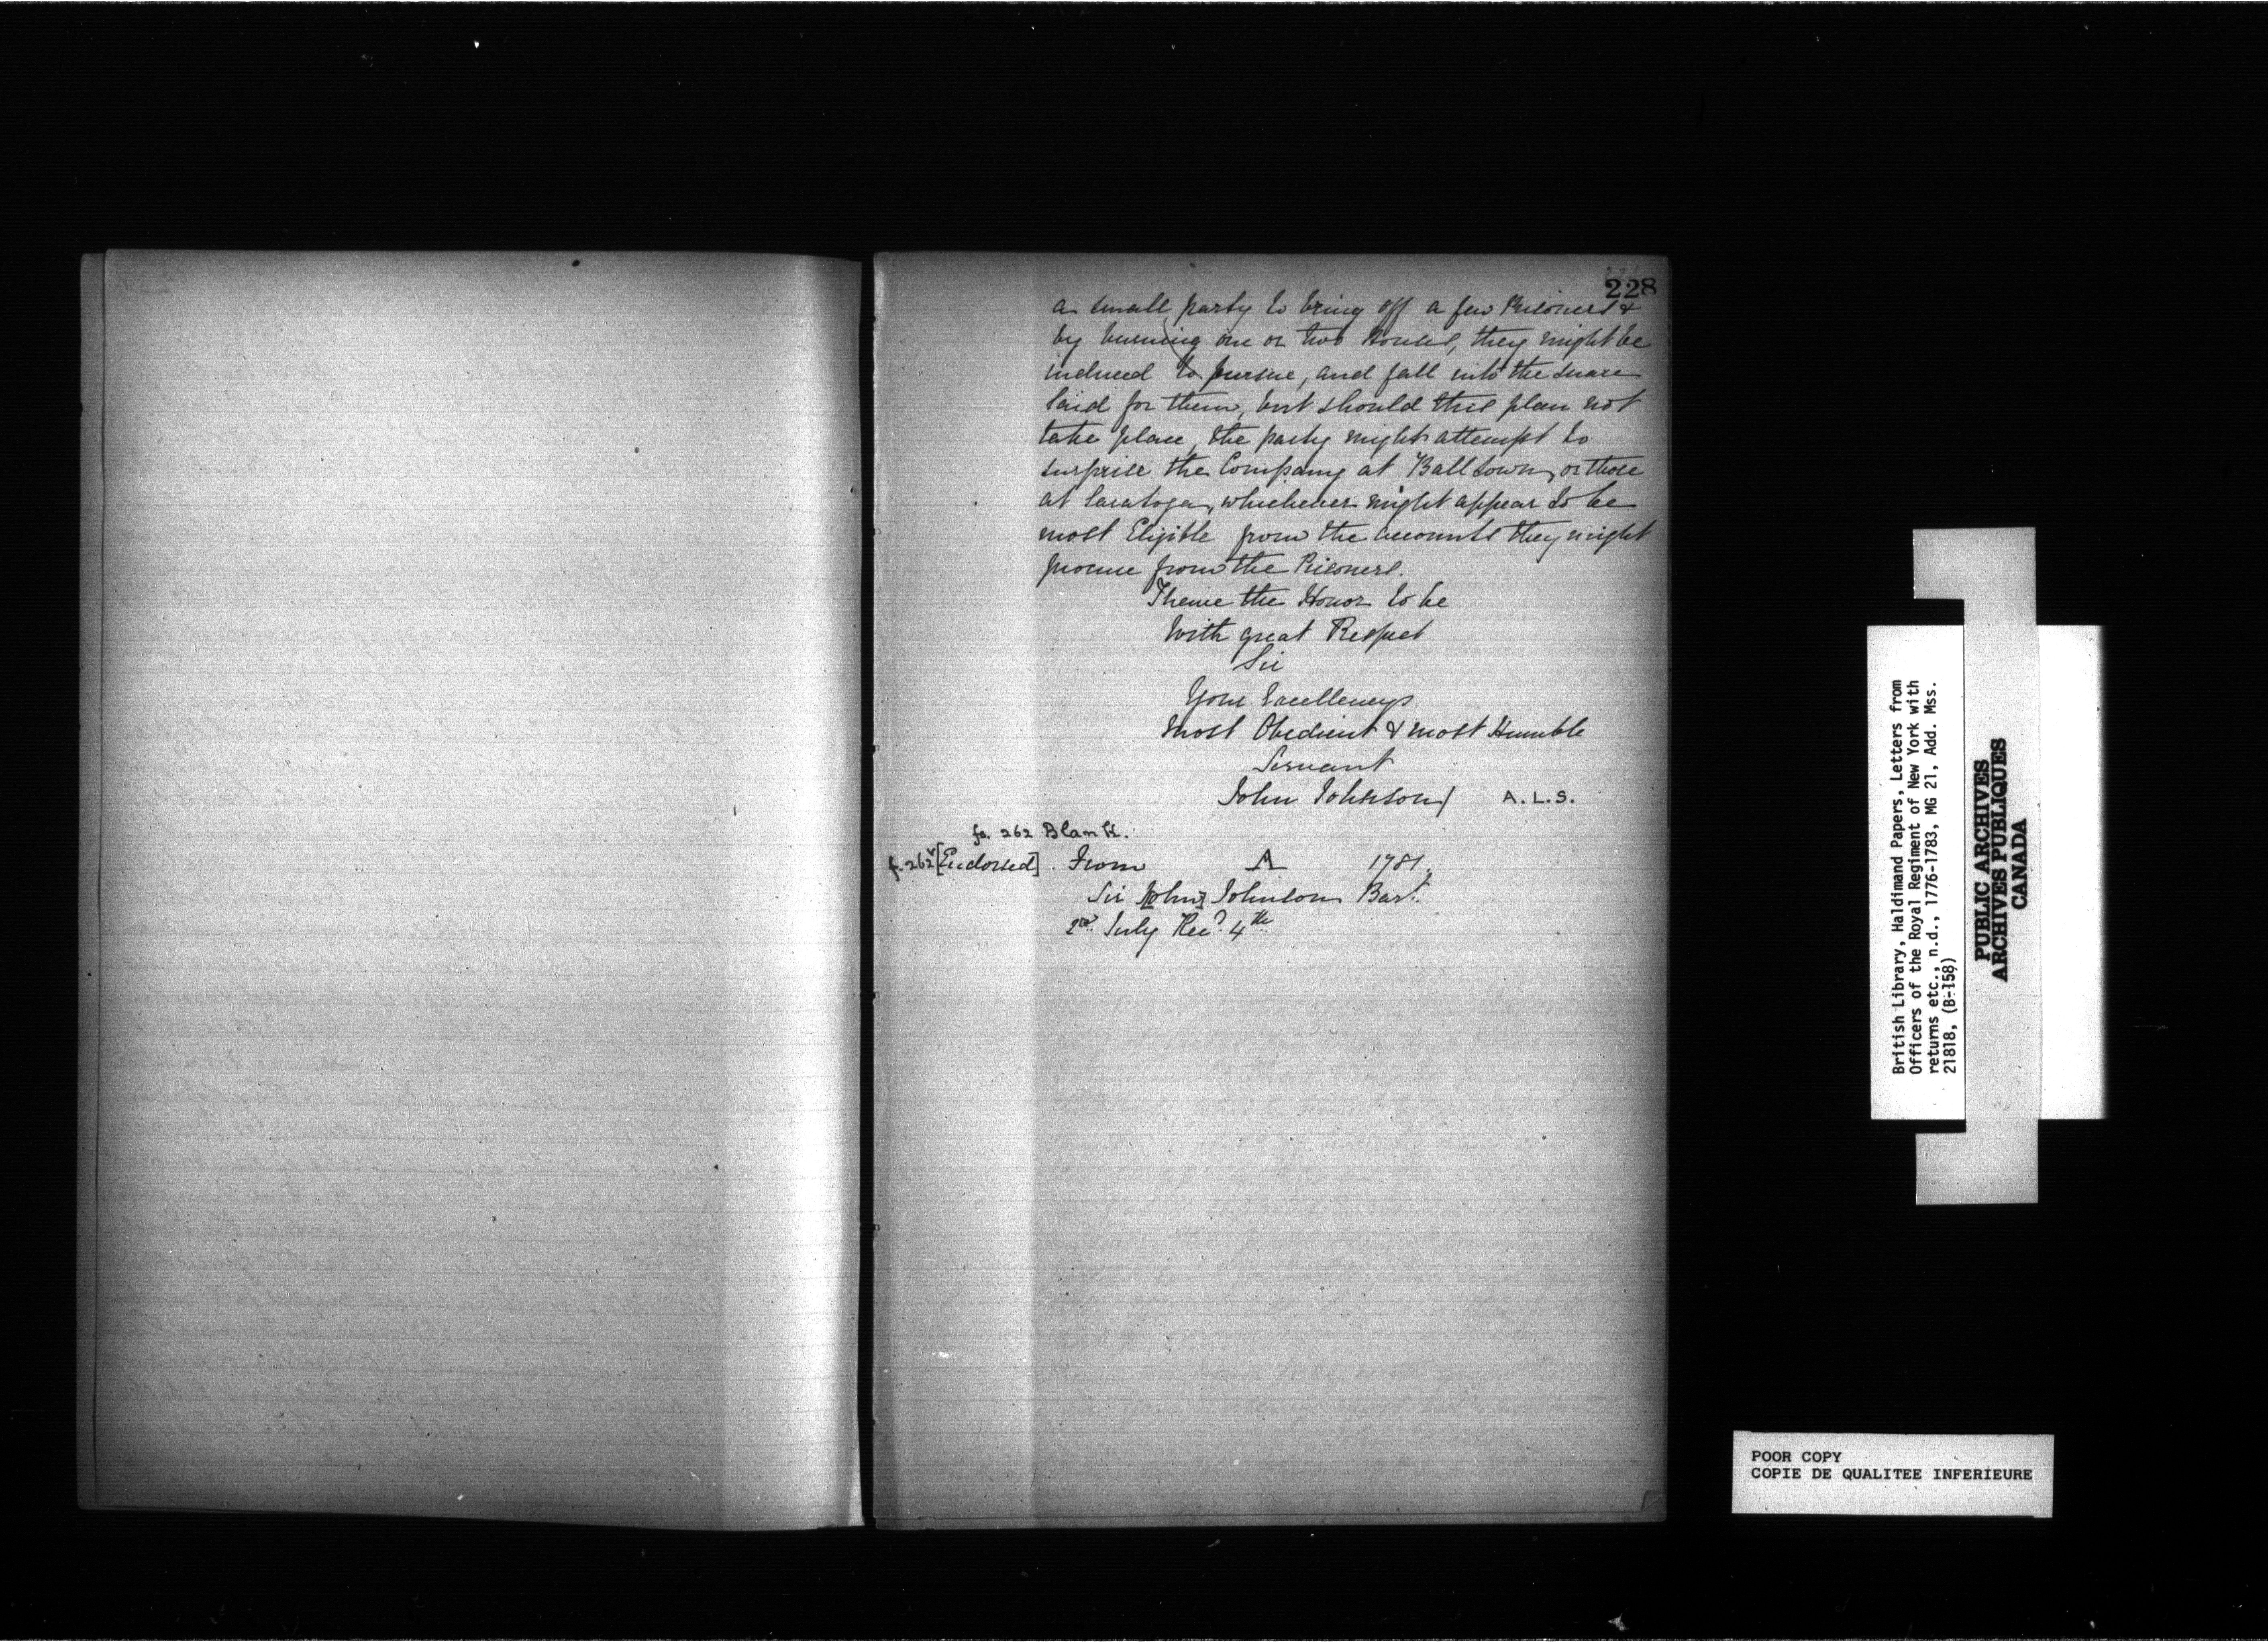 228
a small party to bring off a few Prisoners &
by burning one or two Houses, they might be
induced to pursue, and fall into the snare
laid for them, but should this plan not
take place, the party might attempt to
surprise the Company at Balltown, or those
at Saratoga, whichever might appear to be
most Eligible from the accounts they might
procure from the Prisoners.
I have the Honor to be
With great Respect
Sir
Your Excellencys
Most Obedient & most Humble
Servant
John Johnson/ A.L.S.
fo. 262 Blank.
f. 262v [Endorsed]. From A 1781.
Sir [John] Johnson Bart.
2nd July Recd. 4th
British Library, Haldimand Papers, Letters from
Officers of the Royal Regiment of New York with
returns etc., n.d., 1776-1783, MG 21, Add. Mss.
21818, (B-158)
PUBLIC ARCHIVES
ARCHIVES PUBLIQUES
CANADA
POOR COPY
COPIE DE QUALITEE INFERIEURE